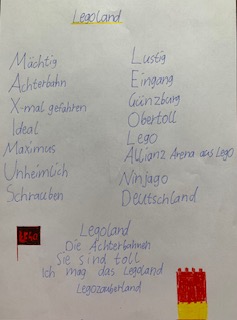 Legoland
Mächtig
Achterbahn
X-mal gefahren
Ideal
Maximus
Unheimlich
Schrauben
Lustig
Eingang
Günzburg
Obertoll
Lego
Allianz Arena aus Lego
Ninjago
Deutschland
LEGO
Legoland
Die Achterbahnen
Sie sind toll
Ich mag das Legoland
Legozauberland